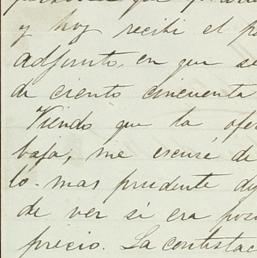 y hoy recibí el
adjunto, en que se
de ciento cincuenta
Viendo que la
baja, me escusé de
lo mas prudente
de ver si era
precio. La